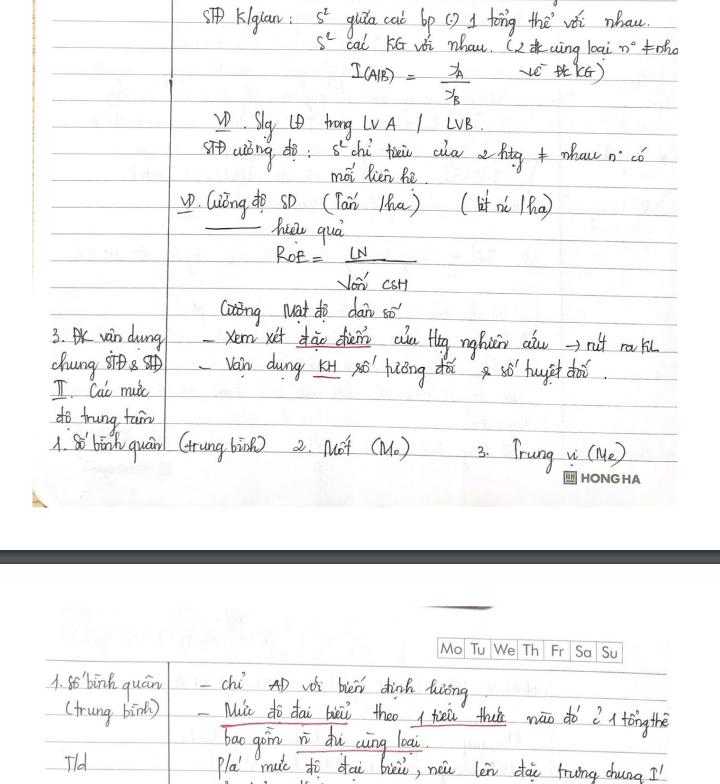 STĐ K/gian : s² giữa các bp (-) 1 tổng thể với nhau.
s² các KG với nhau. (2 đk cùng loại n° ≠ nha
I(A/B) = yA / yB về ĐK KG)
VD. Slg LĐ trong LV A / LVB.
STĐ cường độ : s² chỉ tiêu của 2 htg ≠ nhau n° có
mối liên hệ.
VD. Cường độ SD (Tấn /ha) ( /ha)
hiệu quả
ROE = LN / Vốn CSH
Cường Mật độ dân số
3. ĐK vận dụng
chung STĐ & SĐ
- Xem xét đặc điểm của Htg nghiên cứu → rút ra KL
- Vận dụng KH số tương đối & số tuyệt đối.
II. Các mức
độ trung tâm
1. Số bình quân (trung bình) 2. Mốt (Mo) 3. Trung vị (Me)
HONG HA
Mo Tu We Th Fr Sa Su
1. Số bình quân
(trung bình)
- chỉ AD với biến định lượng
- Mức độ đại biểu theo 1 tiêu thức nào đó ở 1 tổng thể
bao gồm n đvi cùng loại.
T/d P/á mức độ đại biểu, nêu lên đặc trưng chung I'